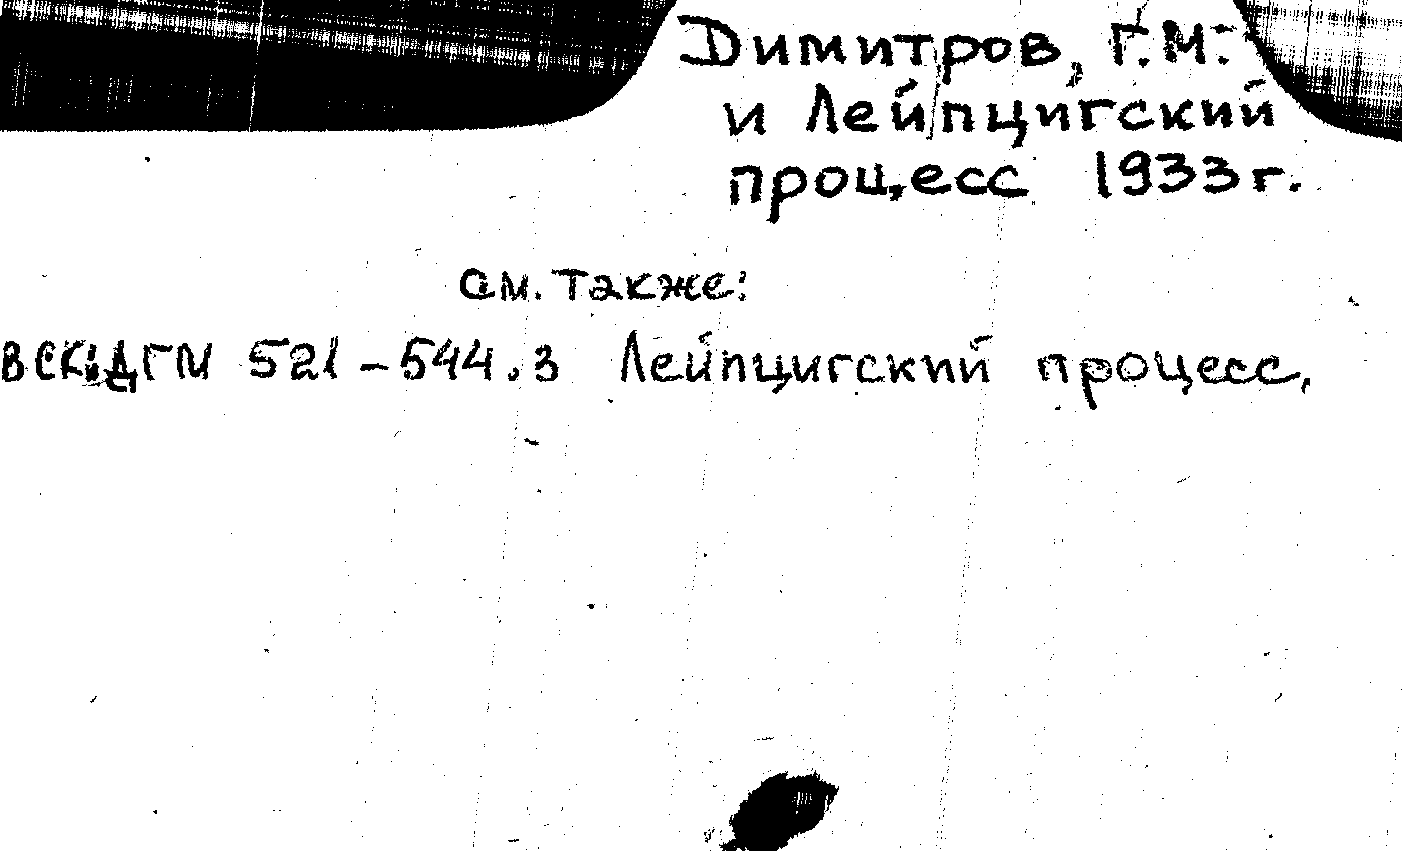 Димитров, Г.М.
и Лейпцигский
процесс 1933 г.
См. также:
521-544.3 Лейпцигский процесс,